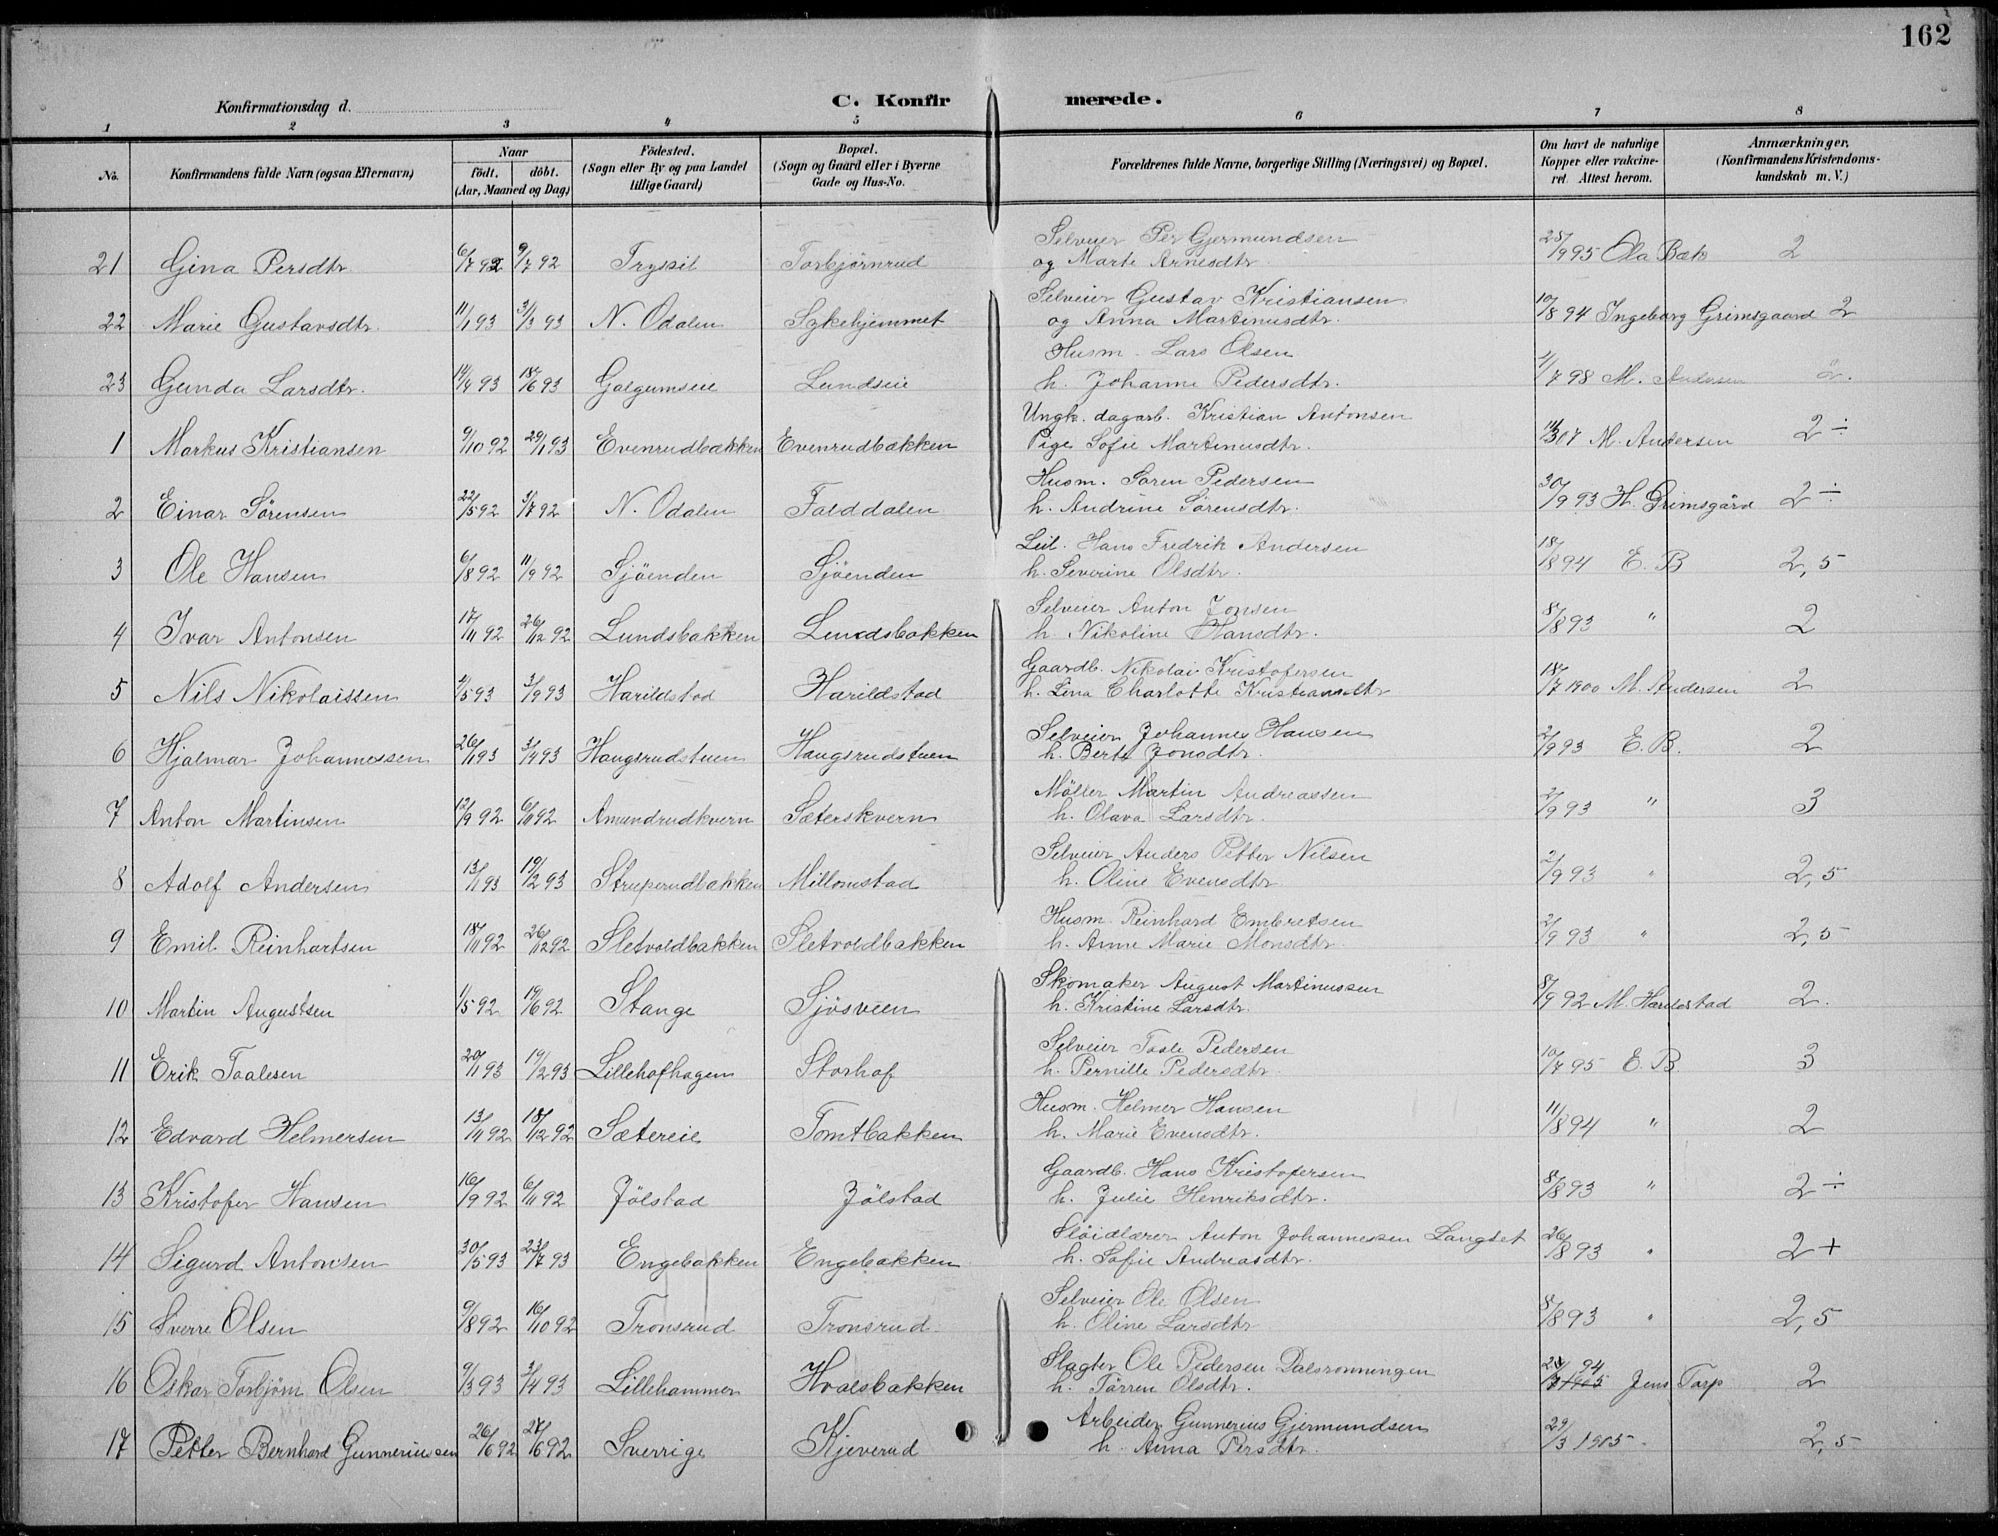 162
Konfirmationsdag d.
C. Konfirmerede.
1 2 3 4 5 6 7 8
No. Konfirmandens fulde Navn (ogsaa Efternavn) Naar født. døbt. (Aar, Maaned og Dag) Fødested. (Sogn eller By og paa Landet tillige Gaard) Bopæl. (Sogn og Gaard eller i Byerne Gade og Hus-No. Forældrenes fulde Navne, borgerlige Stilling (Næringsvei) og Bopæl. Om havt de naturlige Kopper eller vakcineret. Attest herom. Anmærkninger. (Konfirmandens Kristendomskundskab m. V.)
Selveier Per Gjermundsen
21 Gina Persdtr. 6/7 92 9/7 92 Trysil Torbjørnrud og Marte Arnesdtr. 25/9 95 Ola Bæk 2
Selveier Gustav Kristiansen
22 Marie Gustavsdtr. 11/1 93 3/3 93 N. Odalen Sykehjemmet og Anna Martinusdtr. 10/8 94 Ingeborg Grimsgaard 2
Husm. Lars Olsen
23 Gunda Larsdtr. 14/4 93 18/6 93 Galgumseie Lundseie h. Johanne Pedersdtr. /7 98 M. Andersen 2.
Ungk. dagarb. Kristian Antonsen
1 Markus Kristiansen 9/10 92 29/1 93 Evenrudbakken Evenrudbakken Pige Sofie Martinusdtr. 07 M. Andersen 2 ÷
Husm. Søren Pedersen
2 Einar Sørensen 22/5 92 3/7 92 N. Odalen Falddalen h. Andrine Sørensdtr. 30/9 93 H. Grimsgård 2 ÷
Leil. Hans Fredrik Andersen
3 Ole Hansen 6/8 92 11/9 92 Sjøenden Sjøenden h. Severine Olsdtr. 18/8 94 E. B 2,5
Selveier Anton Jonsen
4 Ivar Antonsen 17/11 92 26/12 92 Lundsbakken Lundsbakken h. Nikoline Hansdtr. 8/8 93 " 2
Gaardb. Nikolai Kristofersen
5 Nils Nikolaissen /5 93 3/9 93 Harildstad Harildstad h. Lina Charlotte Kristiansdtr 18/7 1900 M. Andersen 2
Selveier Johannes Hansen
6 Hjalmar Johannessen 26/1 93 3/4 93 Haugsrudstuen Haugsrudstuen h. Berte Jonsdtr. 2/9 93 E. B. 2
Møller Martin Andreassen
7 Anton Martinsen 12/9 92 6/11 92 Amundrudkvern Sæterskvern h. Olava Larsdtr. 2/9 93 " 3
Selveier Anders Petter Nilsen
8 Adolf Andersen 13/1 93 19/2 93 Struperudbakken Millomstad h. Oline Evensdtr. 2/9 93 " 2,5
Husm. Reinhard Embretsen
9 Emil Reinhartsen 18/11 92 26/12 92 Sletvoldbakken Sletvoldbakken h. Anne Marie Monsdtr. 2/9 93 " 2,5
Skomaker August Martinussen
10 Martin Augustsen 1/5 92 19/6 92 Stange Sjøsveen h. Kristine Larsdtr. 8/9 92 M. Harildstad 2.
Selveier Taale Pedersen
11 Erik Taalesen 20/1 93 19/2 93 Lillehofhagen Storhof h. Pernille Pedersdtr. 10/7 95 E. B 3
Husm. Helmer Hansen
12 Edvard Helmersen 13/11 92 18/12 92 Sætereie Tomtbakken h. Marie Evensdtr. 11/8 94 " 2
Gaardb. Hans Kristofersen
13 Kristofer Hansen 16/9 92 6/11 92 Jølstad Jølstad h. Julie Henriksdtr. 8/8 93 " 2 ÷
Sløidlærer Anton Johannessen Langset
14 Sigurd Antonsen 30/5 93 23/7 93 Engebakken Engebakken h. Sofie Andreasdtr. 26/8 93 " 2 +
Selveier Ole Olsen
15 Sverre Olsen 9/8 92 16/10 92 Tronsrud Tronsrud. h. Oline Larsdtr. 8/8 93 " 2,5
Slagter Ole Pedersen Dalsrønningen
16 Oskar Torbjørn Olsen 9/3 93 3/4 93 Lillehammer Hvalsbakken h. Tørren Olsdtr. 94 Jens Tarp 2
Arbeider Gunnerius Gjermundsen
17 Petter Bernhard Gunneriussen 26/6 92 27/6 92 Sverrige Kjeverud h. Anna Persdtr. 29/3 1905 2,5